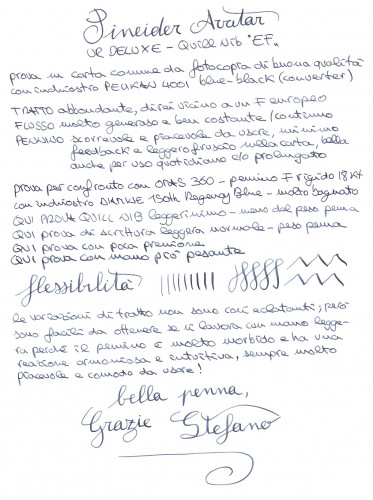 Pineider Avatar
UR DELUXE - Quill Nib "EF"
prova su carta comune da fotocopia di buona qualità
con inchiostro PELIKAN 4001 blue-black (converter)
TRATTO abbondante, direi vicino a un F europeo
FLUSSO molto generoso e ben costante/continuo
PENNINO scorrevole e piacevole da usare, minimo
feedback e leggero fruscio sulla carta, bella
anche per uso quotidiano e/o prolungato
prova per confronto con OMAS 360 - pennino F rigido 18 Kt
con inchiostro DIAMINE 150th Regency Blue - molto bagnato
QUI PROVA QUILL NIB leggerissimo - meno del peso penna
QUI prova di scrittura leggera normale - peso penna
QUI prova con poca pressione
QUI prova con mano più pesante
flessibilità
le variazioni di tratto non sono così eclatanti, però
sono facili da ottenere se si lavora con mano legge-
ra perché il pennino è molto morbido e ha una
reazione armoniosa e intuitiva, sempre molto
piacevole e comodo da usare!
bella penna,
Grazie Stefano